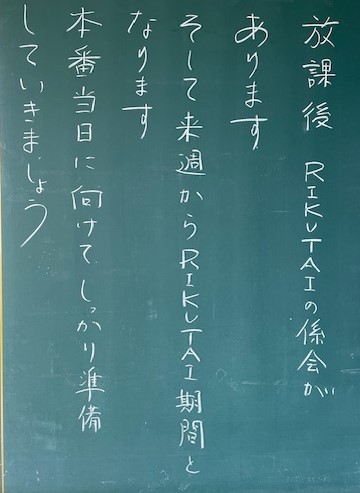 放課後 RIKUTAIの係会が
あります
そして来週からRIKUTAI期間と
なります
本番当日に向けて、しっかり準備
していきましょう